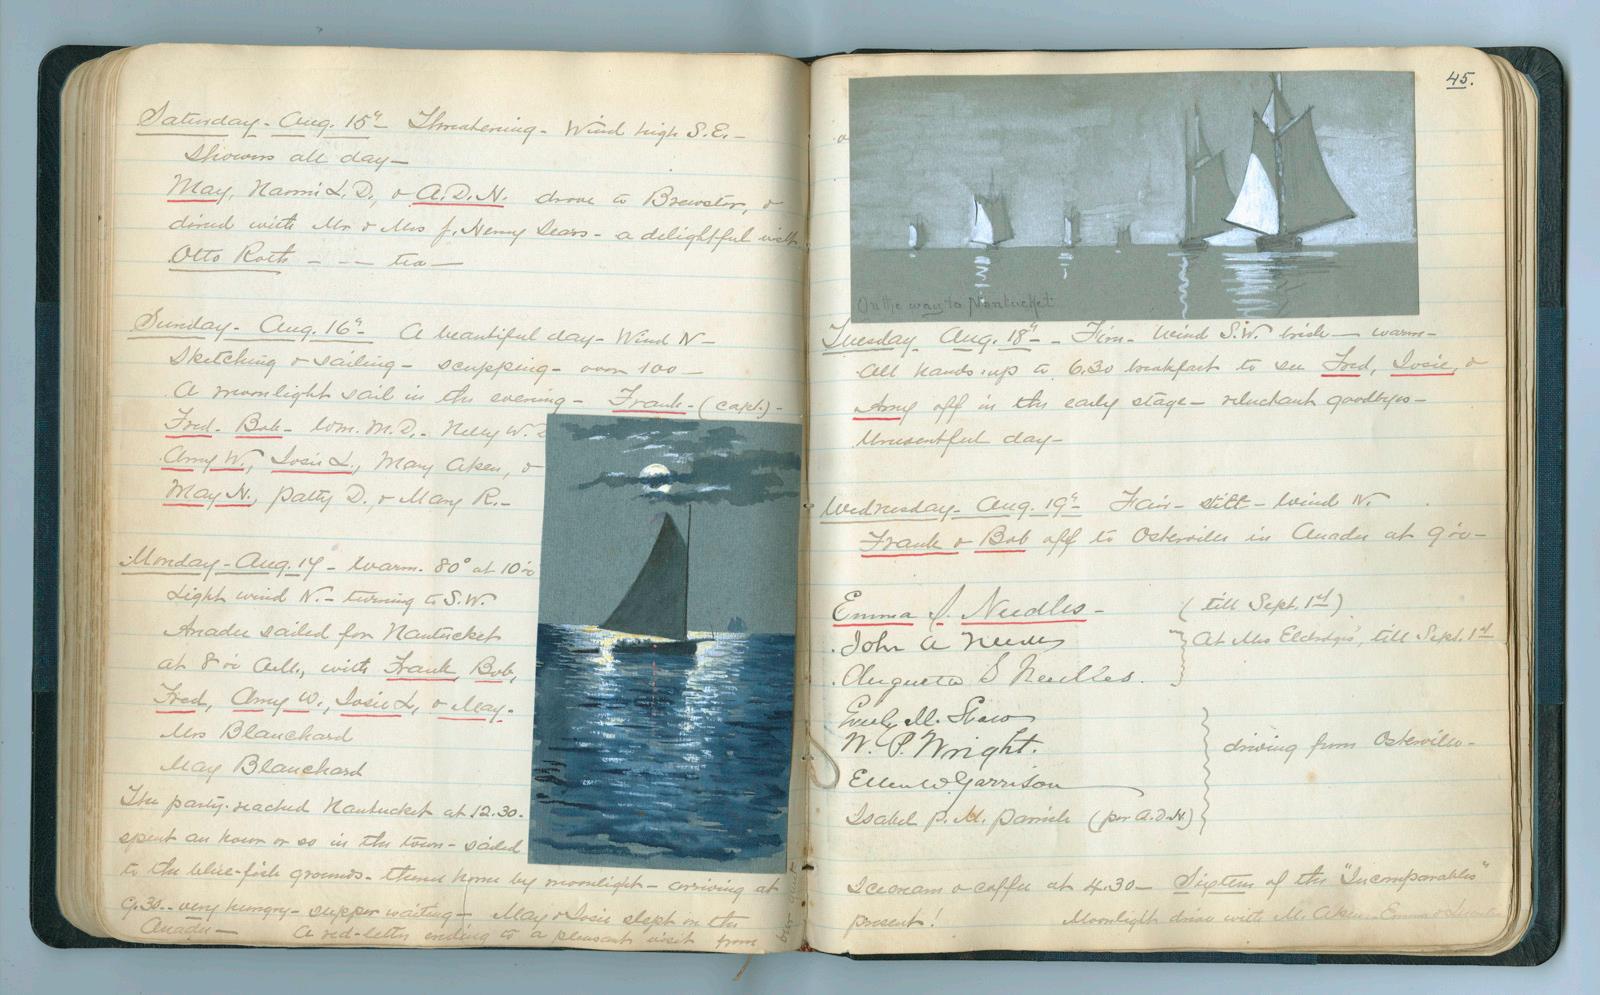 Saturday - Aug. 15th Threatening - Wind high S.E. -
Showers all day -
May, Naomi L.D., & A.D.N. drove to Brewster, &
dined with Mr & Mrs J. Henry Sears - a delightful visit.
Otto Roth - - - tea -
Sunday - Aug. 16th A beautiful day - Wind N -
Sketching & sailing - scupping - over 100 -
A moonlight sail in the evening - Frank - (capt.) -
Fred - Bob - Wm. M.D. - Nelly W.D
Amy W., Josie L., Mary Aken, &
May N., Patty D., & Mary R. -
Monday - Aug. 17 - Warm. 80° at 10
Light wind N. - turning to S.W.
Anadu sailed for Nantucket
at 8 A.M., with Frank, Bob,
Fred, Amy W., Josie L, & May.
Mrs Blanchard
May Blanchard
The party reached Nantucket at 12.30.
spent an hour or so in the town - sailed
to the blue-fish grounds - thence home by moonlight - arriving at
9.30 - very hungry - supper waiting - May & Josie slept on the
Anadu - A red-letter ending to a pleasant visit from
45.
On the way to Nantucket
Tuesday Aug. 18th - Fair - Wind S.W. brisk - warm -
All hands up to 6.30 breakfast to see Fred, Josie, &
Amy off in the early stage - reluctant goodbyes -
Uneventful day -
Wednesday - Aug. 19th - Fair - still - Wind N.
Frank & Bob off to Osterville in Anadu at 9 -
Emma J. Needles - (till Sept. 1st)
John A Needles
Augusta S Needles. At Mrs Eldridges', till Sept. 1st
Emily M. Shaw
W. P. Wright.
Ellen W. Garrison driving from Osterville -
Isabel P. M. Parrish (per A.D.N.)
Icecream & coffee at 4.30 - Sixteen of the "Incomparables"
present! Moonlight drive with M. Aken - Emma &